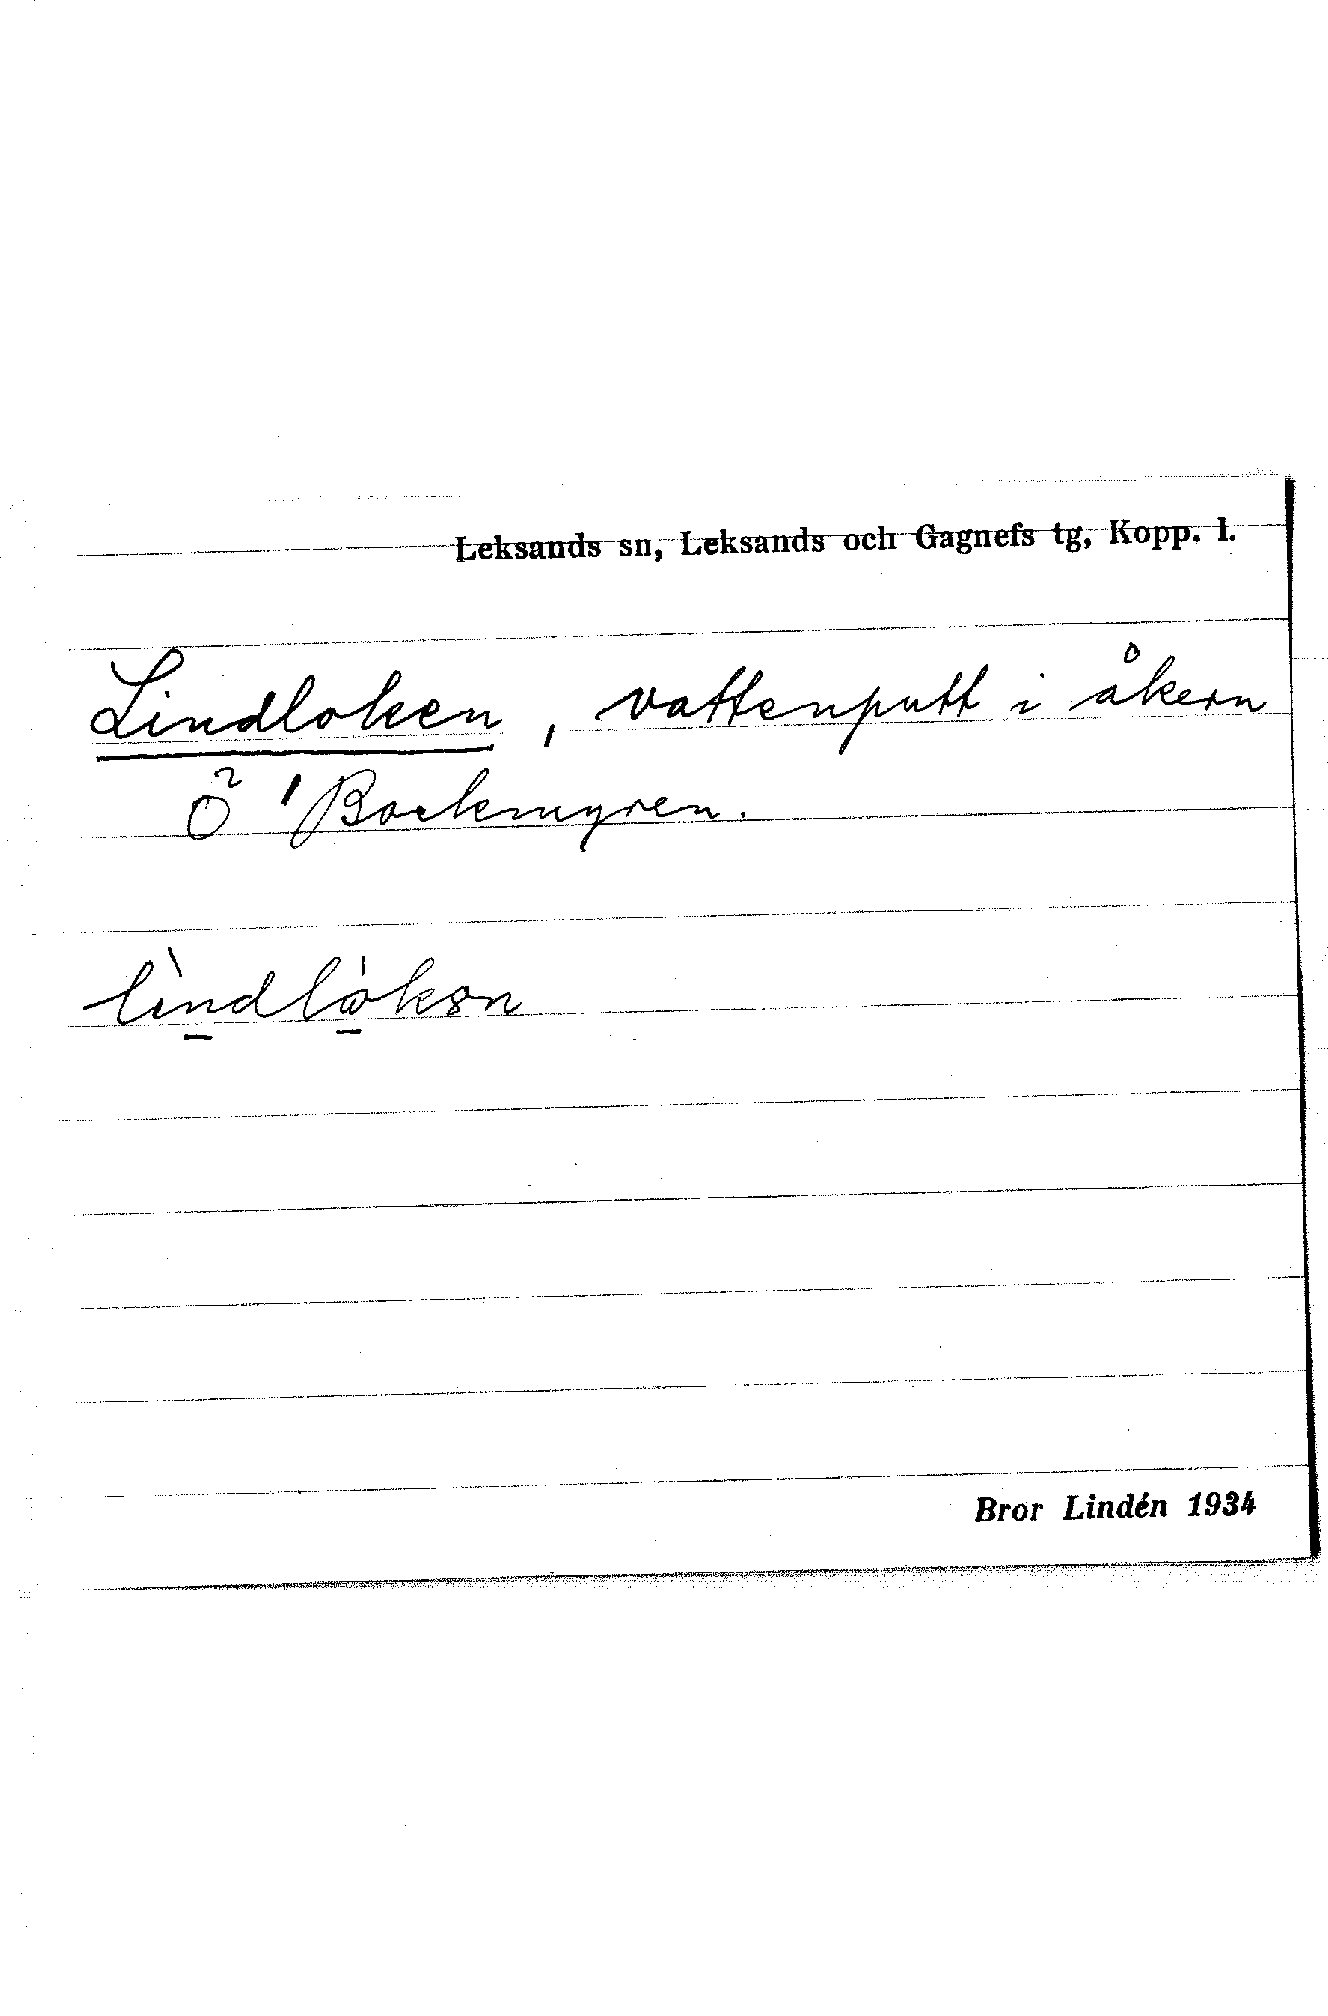 Leksands sn, Leksands och Gagnefs tg, Kopp. l.
Lindloken, vattenputt i åkern
Ö Bockmyren.
lìndlo̍kən
Bror Lindén 1934